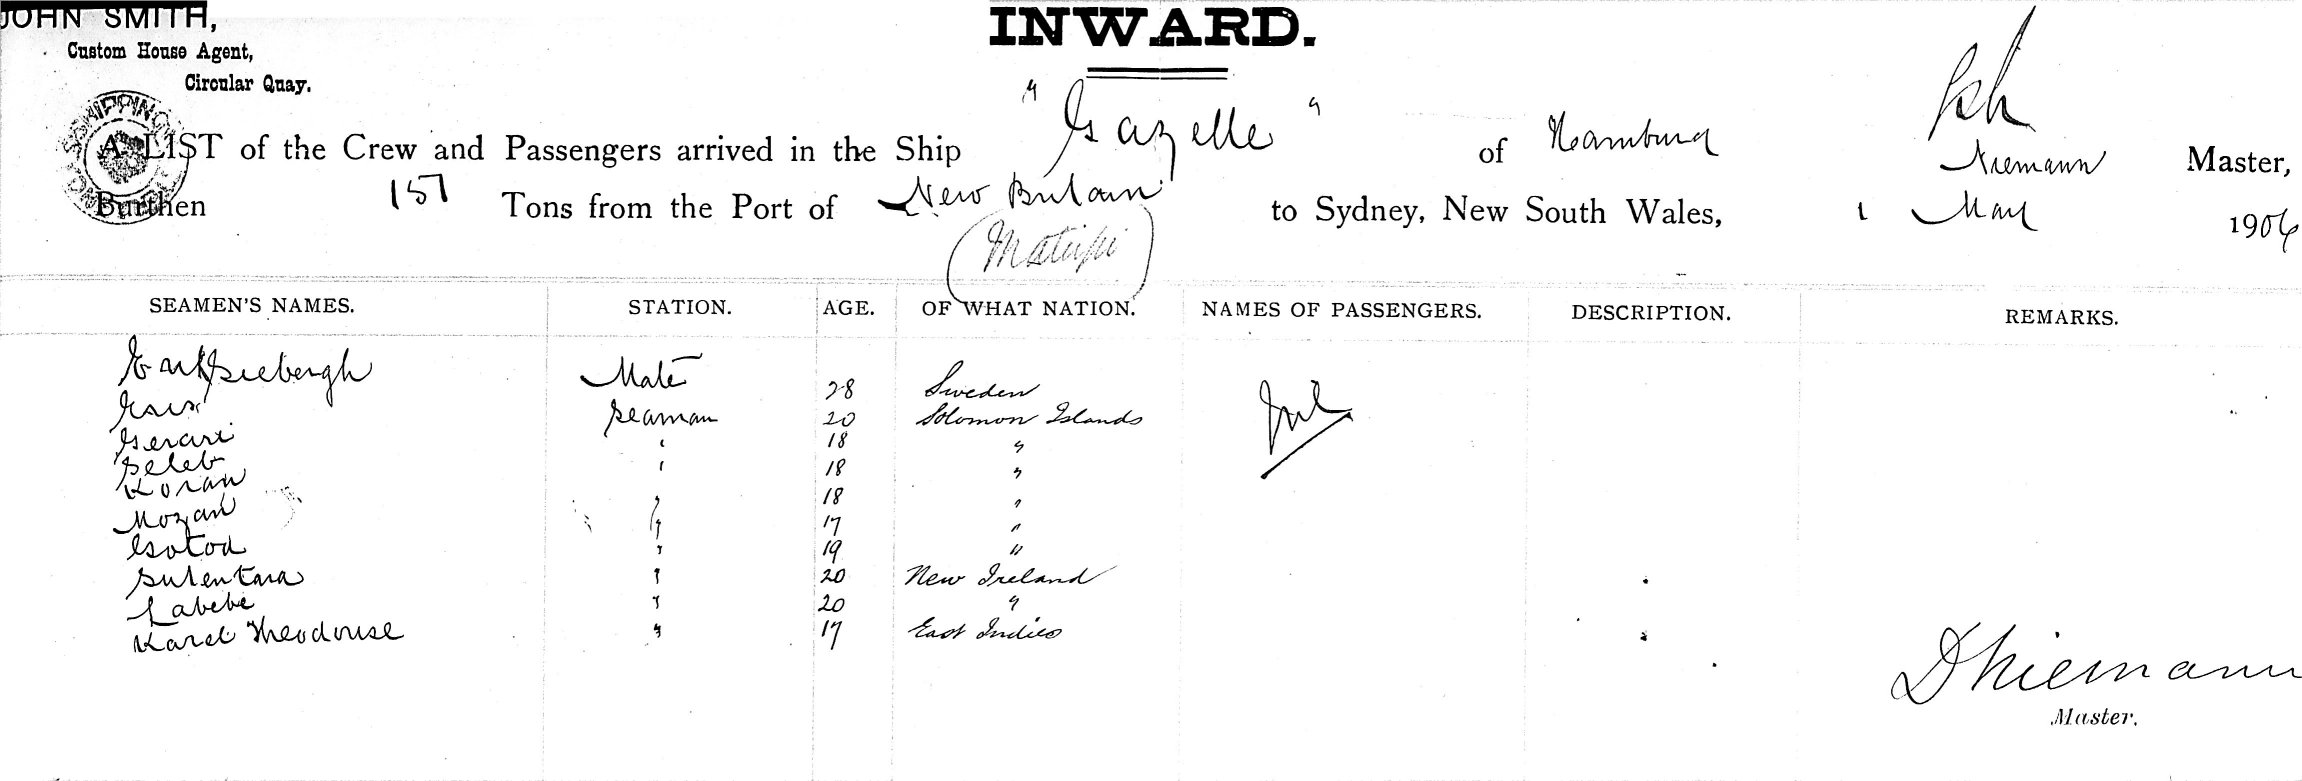 JOHN SMITH,
Custom House Agent,
Circular Quay.
INWARD.
A LIST of the Crew and Passengers arrived in the Ship "Gazelle" of Hamburg Niemann Master,
Burthen 157 Tons from the Port of New Britain to Sydney, New South Wales, 1 May 1906
(Matupi)
SEAMEN'S NAMES. STATION. AGE. OF WHAT NATION. NAMES OF PASSENGERS. DESCRIPTION. REMARKS.
Mate 28 Sweden
Seaman 20 Solomon Islands Nil
Gerari " 18 "
Seleb " 18 "
Koran " 18 "
Mozan " 17 "
" 19 "
" 20 New Ireland
Labebe " 20 "
Karel Theodouse " 17 East Indies
D Niemann
Master.